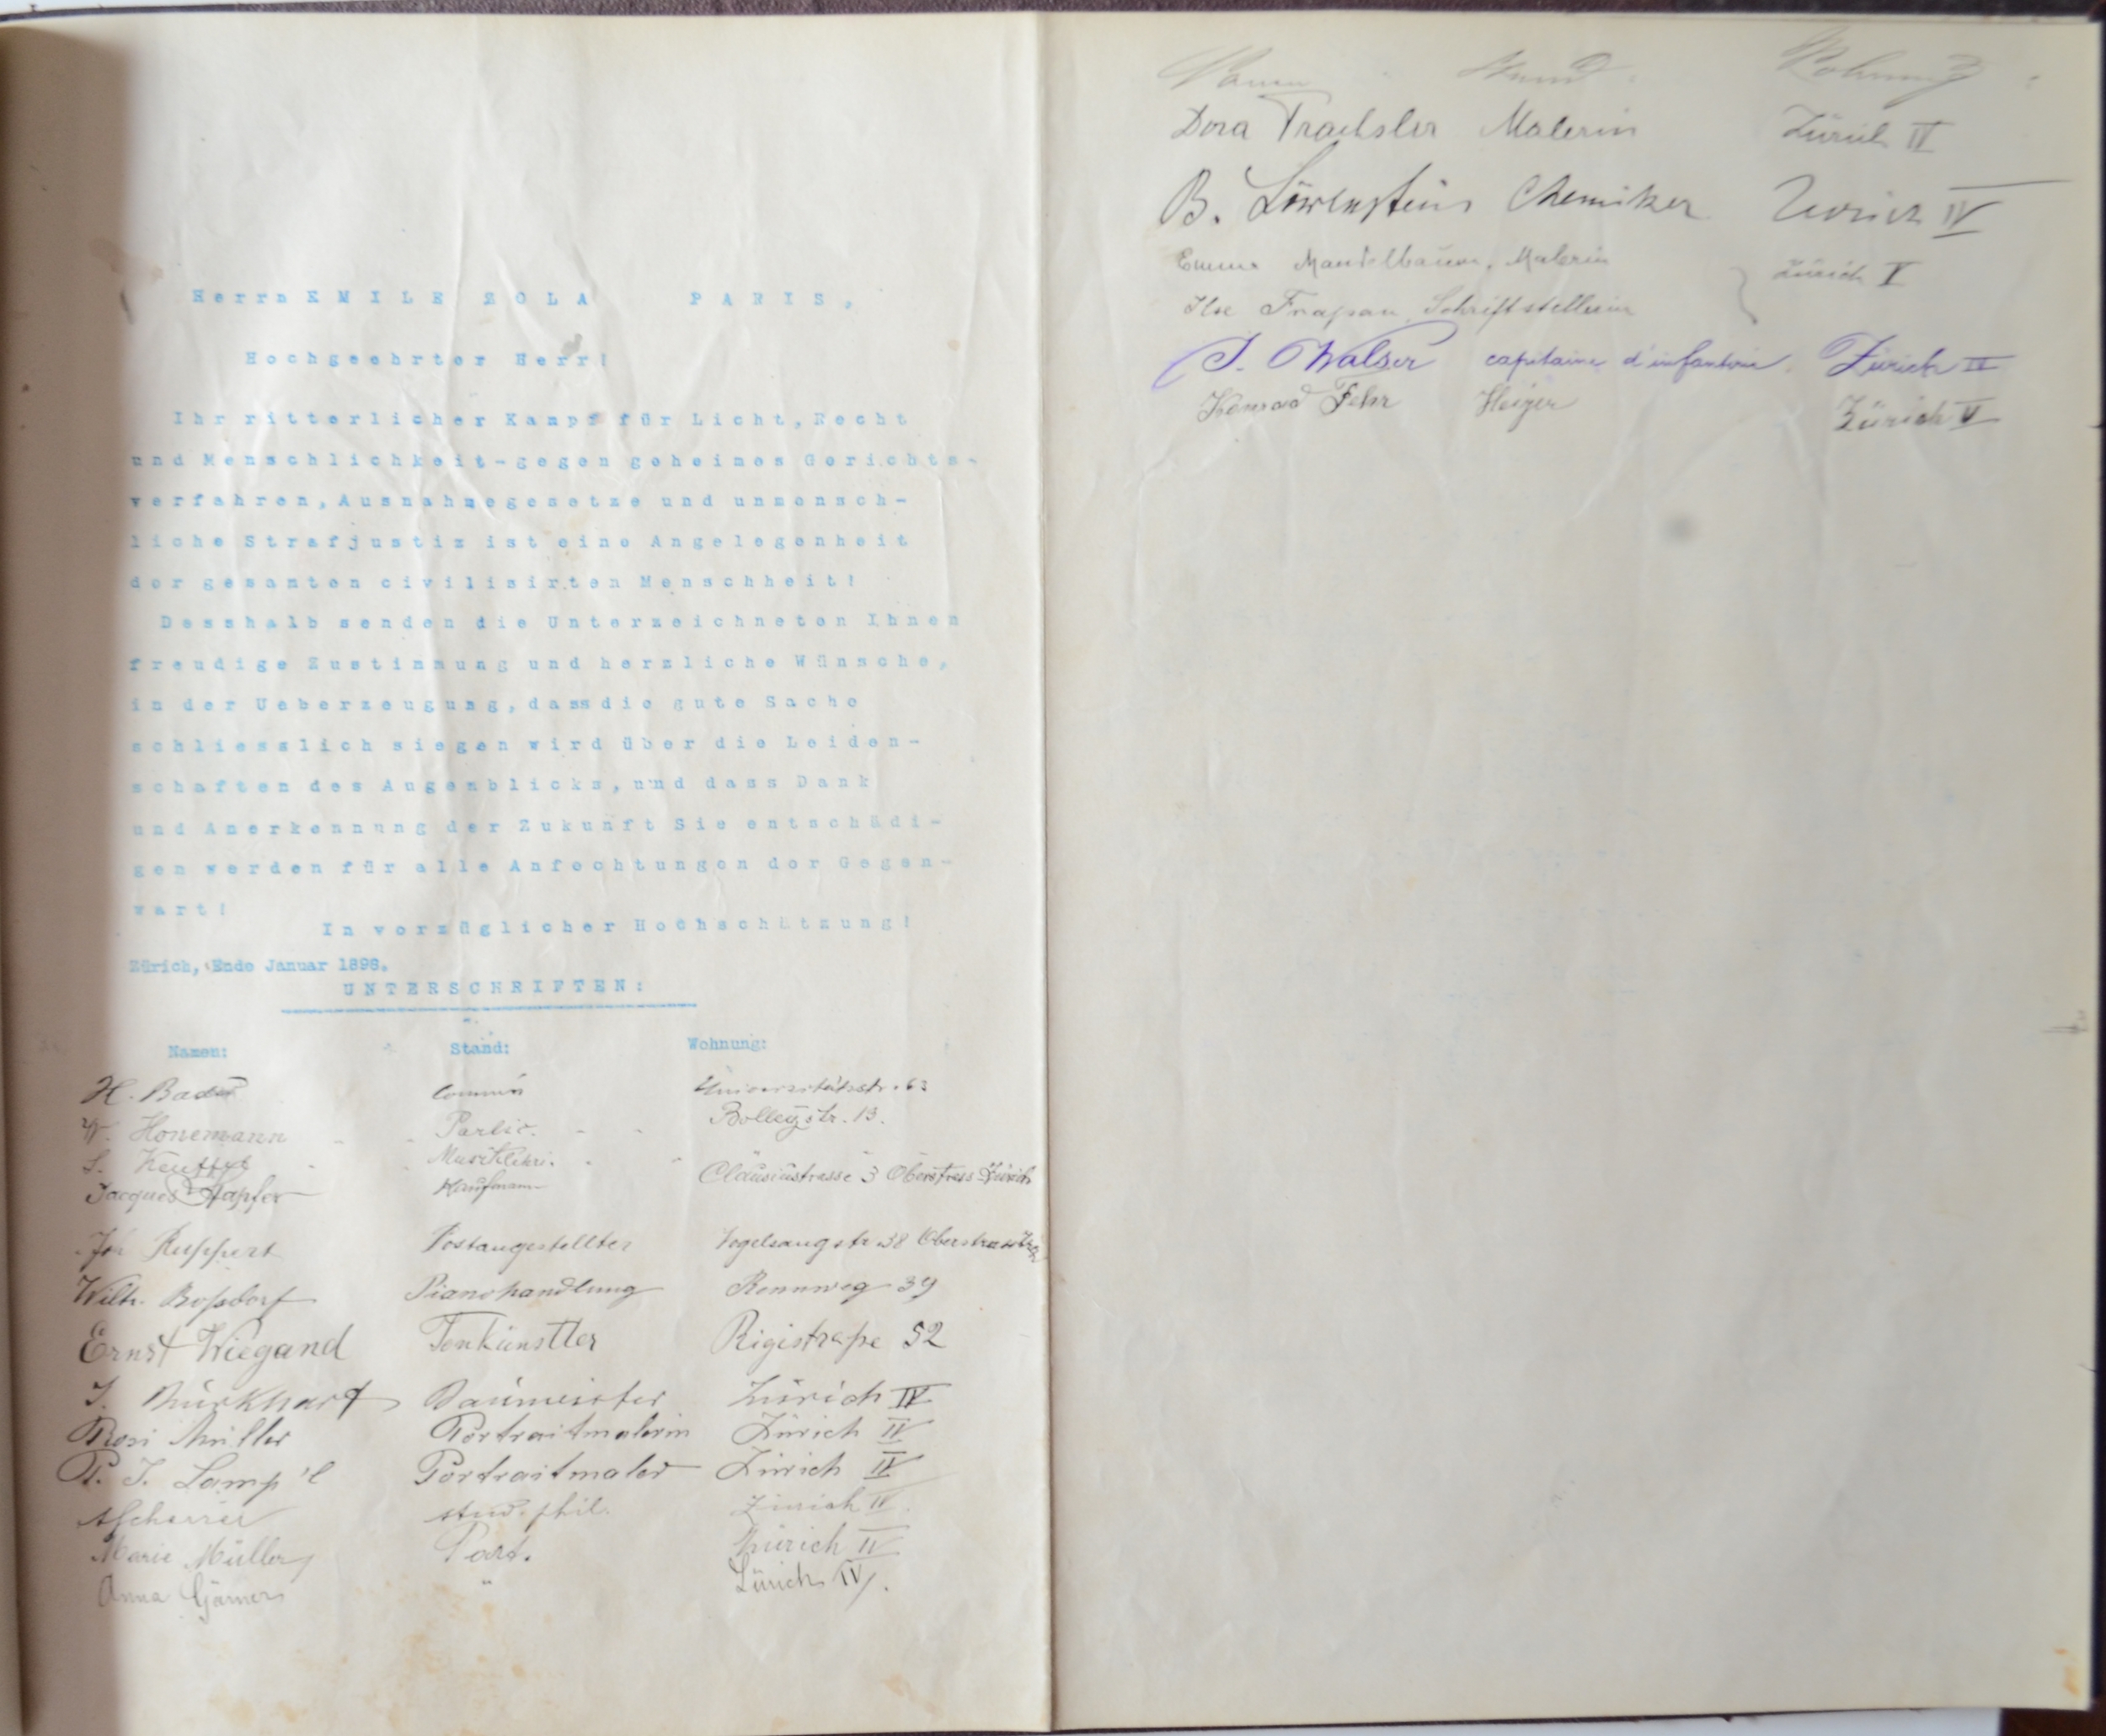 Herrn EMILE ZOLA PARIS,
Hochgeehrter Herr!
Ihr ritterlicher Kampf für Licht, Recht
und Menschlichkeit-gegen geheimes Gerichts-
verfahren, Ausnahmegesetze und unmensch-
liche Strafjustiz ist eine Angelegenheit
der gesamten civilisirten Menschheit!
Desshalb senden die Unterzeichneten Ihnen
freudige Zustimmung und herzliche Wünsche,
in der Ueberzeugung, dass die gute Sache
schliesslich siegen wird über die Leiden-
schaften des Augenblicks, und dass Dank
und Anerkennung der Zukunft Sie entschädi-
gen werden für alle Anfechtungen der Gegen-
wart!
In vorzüglicher Hochschätzung!
Zürich, Ende Januar 1898.
UNTERSCHRIFTEN:
Namen: Stand: Wohnung:
H. Bader Commis Universitätsstr. 63
W. Honemann Partic. Bolleystr. 13.
S. Musiklehr.
Jacques Kaufmann Clausiusstrasse 3 Oberstrass Zürich
Joh Ruppert Postangestellter Vogelsangstr 38 Oberstrass
Wilh. Boßdorf Pianohandlung Rennweg 39
Ernst Wiegand Tonkünstler Rigistraße 52
J. Burkhart Baumeister Zürich IV
Rosi Müller Portraitmalerin Zürich IV
P. J. Lamp'l Portraitmaler Zürich IV
AScherrer stud. phil. Zürich IV.
Marie Müller Part. Zürich IV
Anna " Zürich IV.
Namen Stand Wohnung
Dora Trachsler Malerin Zürich IV
B. Löwenstein Chemiker Zürich IV
Emma Mandelbaum, Malerin Zürich V
Ilse Frapan Schriftstellerin
J. Walser capitaine d'infanterie Zürich IV
Konrad Fehr Heizer Zürich V